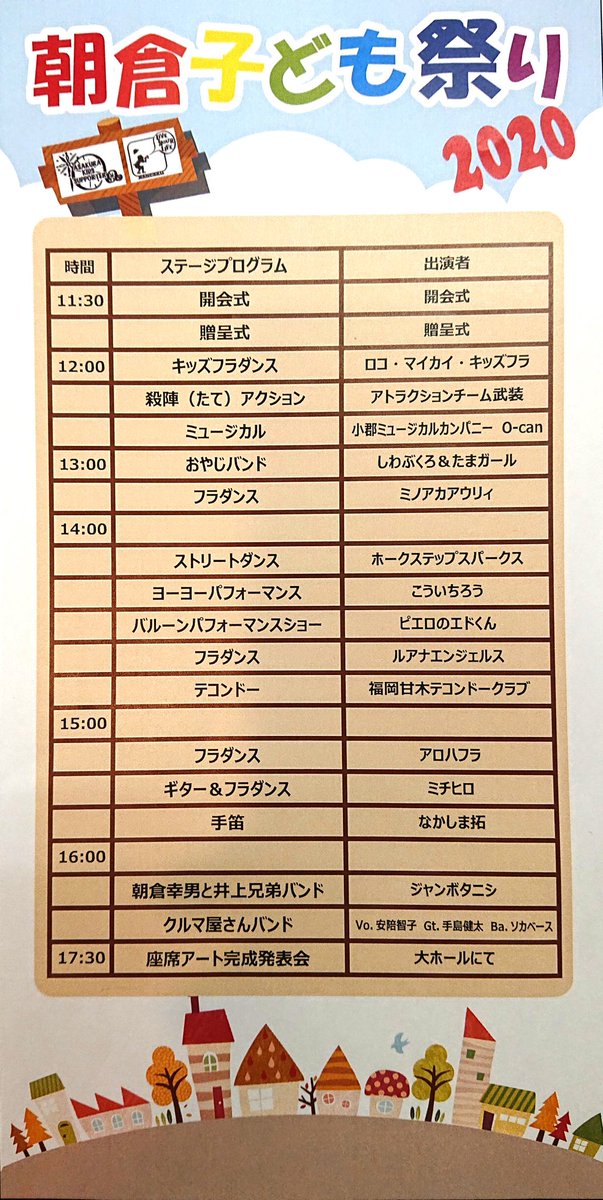 朝倉子ども祭り
2020
ASAKURA
KIDS
SUPPORTER
時間 ステージプログラム 出演者
11:30 開会式 開会式
贈呈式 贈呈式
12:00 キッズフラダンス ロコ・マイカイ・キッズフラ
殺陣（たて）アクション アトラクションチーム武装
ミュージカル 小郡ミュージカルカンパニー O-can
13:00 おやじバンド しわぶくろ＆たまガール
フラダンス ミノアカアウリィ
14:00
ストリートダンス ホークステップスパークス
ヨーヨーパフォーマンス こういちろう
バルーンパフォーマンスショー ピエロのエドくん
フラダンス ルアナエンジェルス
テコンドー 福岡甘木テコンドークラブ
15:00
フラダンス アロハフラ
ギター＆フラダンス ミチヒロ
手笛 なかしま拓
16:00
朝倉幸男と井上兄弟バンド ジャンボタニシ
クルマ屋さんバンド Vo.安陪智子 Gt.手島健太 Ba.ソカベース
17:30 座席アート完成発表会 大ホールにて